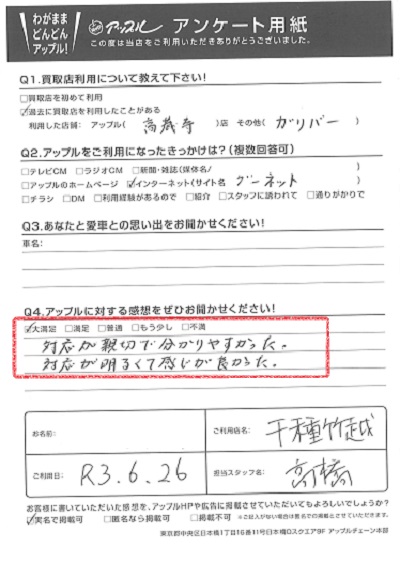 わがまま
どんどん
アップル!
アップル アンケート用紙
この度は当店をご利用いただきありがとうございました。
Q1.買取店利用について教えて下さい!
□買取店を初めて利用
☑過去に買取店を利用したことがある
利用した店舗: アップル( 高蔵寺 )店 その他( ガリバー )
Q2.アップルをご利用になったきっかけは?(複数回答可)
□テレビCM □ラジオCM □新聞・雑誌(媒体名/ )
□アップルのホームページ ☑インターネット(サイト名 グーネット )
□チラシ □DM □利用経験があるので □紹介 □スタッフに誘われて □通りがかりで
Q3.あなたと愛車との思い出をお聞かせください!
車名:
Q4.アップルに対する感想をぜひお聞かせください!
☑大満足 □満足 □普通 □もう少し □不満
対応が親切で分かりやすかった。
対応が明るくて感じが良かった。
お名前:
ご利用店名: 千種竹越
ご利用日: R3.6.26
担当スタッフ名: 高橋
お客様に書いていただいた感想を、アップルHPや広告に掲載させていただいてもよろしいでしょうか?
☑実名で掲載可 □匿名なら掲載可 □掲載不可 ※ご記入がない場合は匿名での掲載とさせていただきます。
東京都中央区日本橋1丁目16番11号日本橋Dスクエア8F アップルチェーン本部